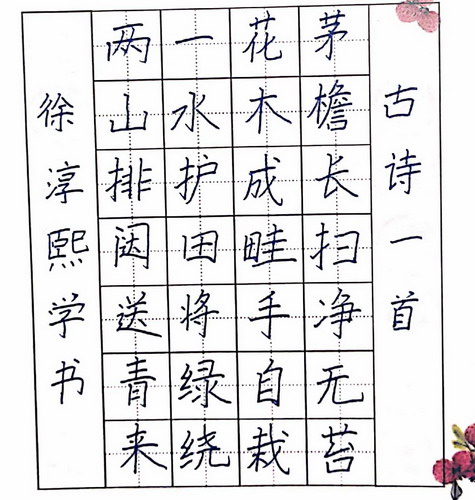 古诗一首
茅檐长扫净无苔
花木成畦手自栽
一水护田将绿绕
两山排闼送青来
徐淳熙学书